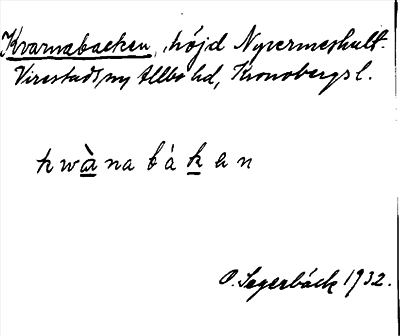 Kvarnabacken, höjd Nyvermeshult.
Virestads, ny Allbo hd, Kronobergs l.
kwàna bákan
O. Segerbäck 1932.